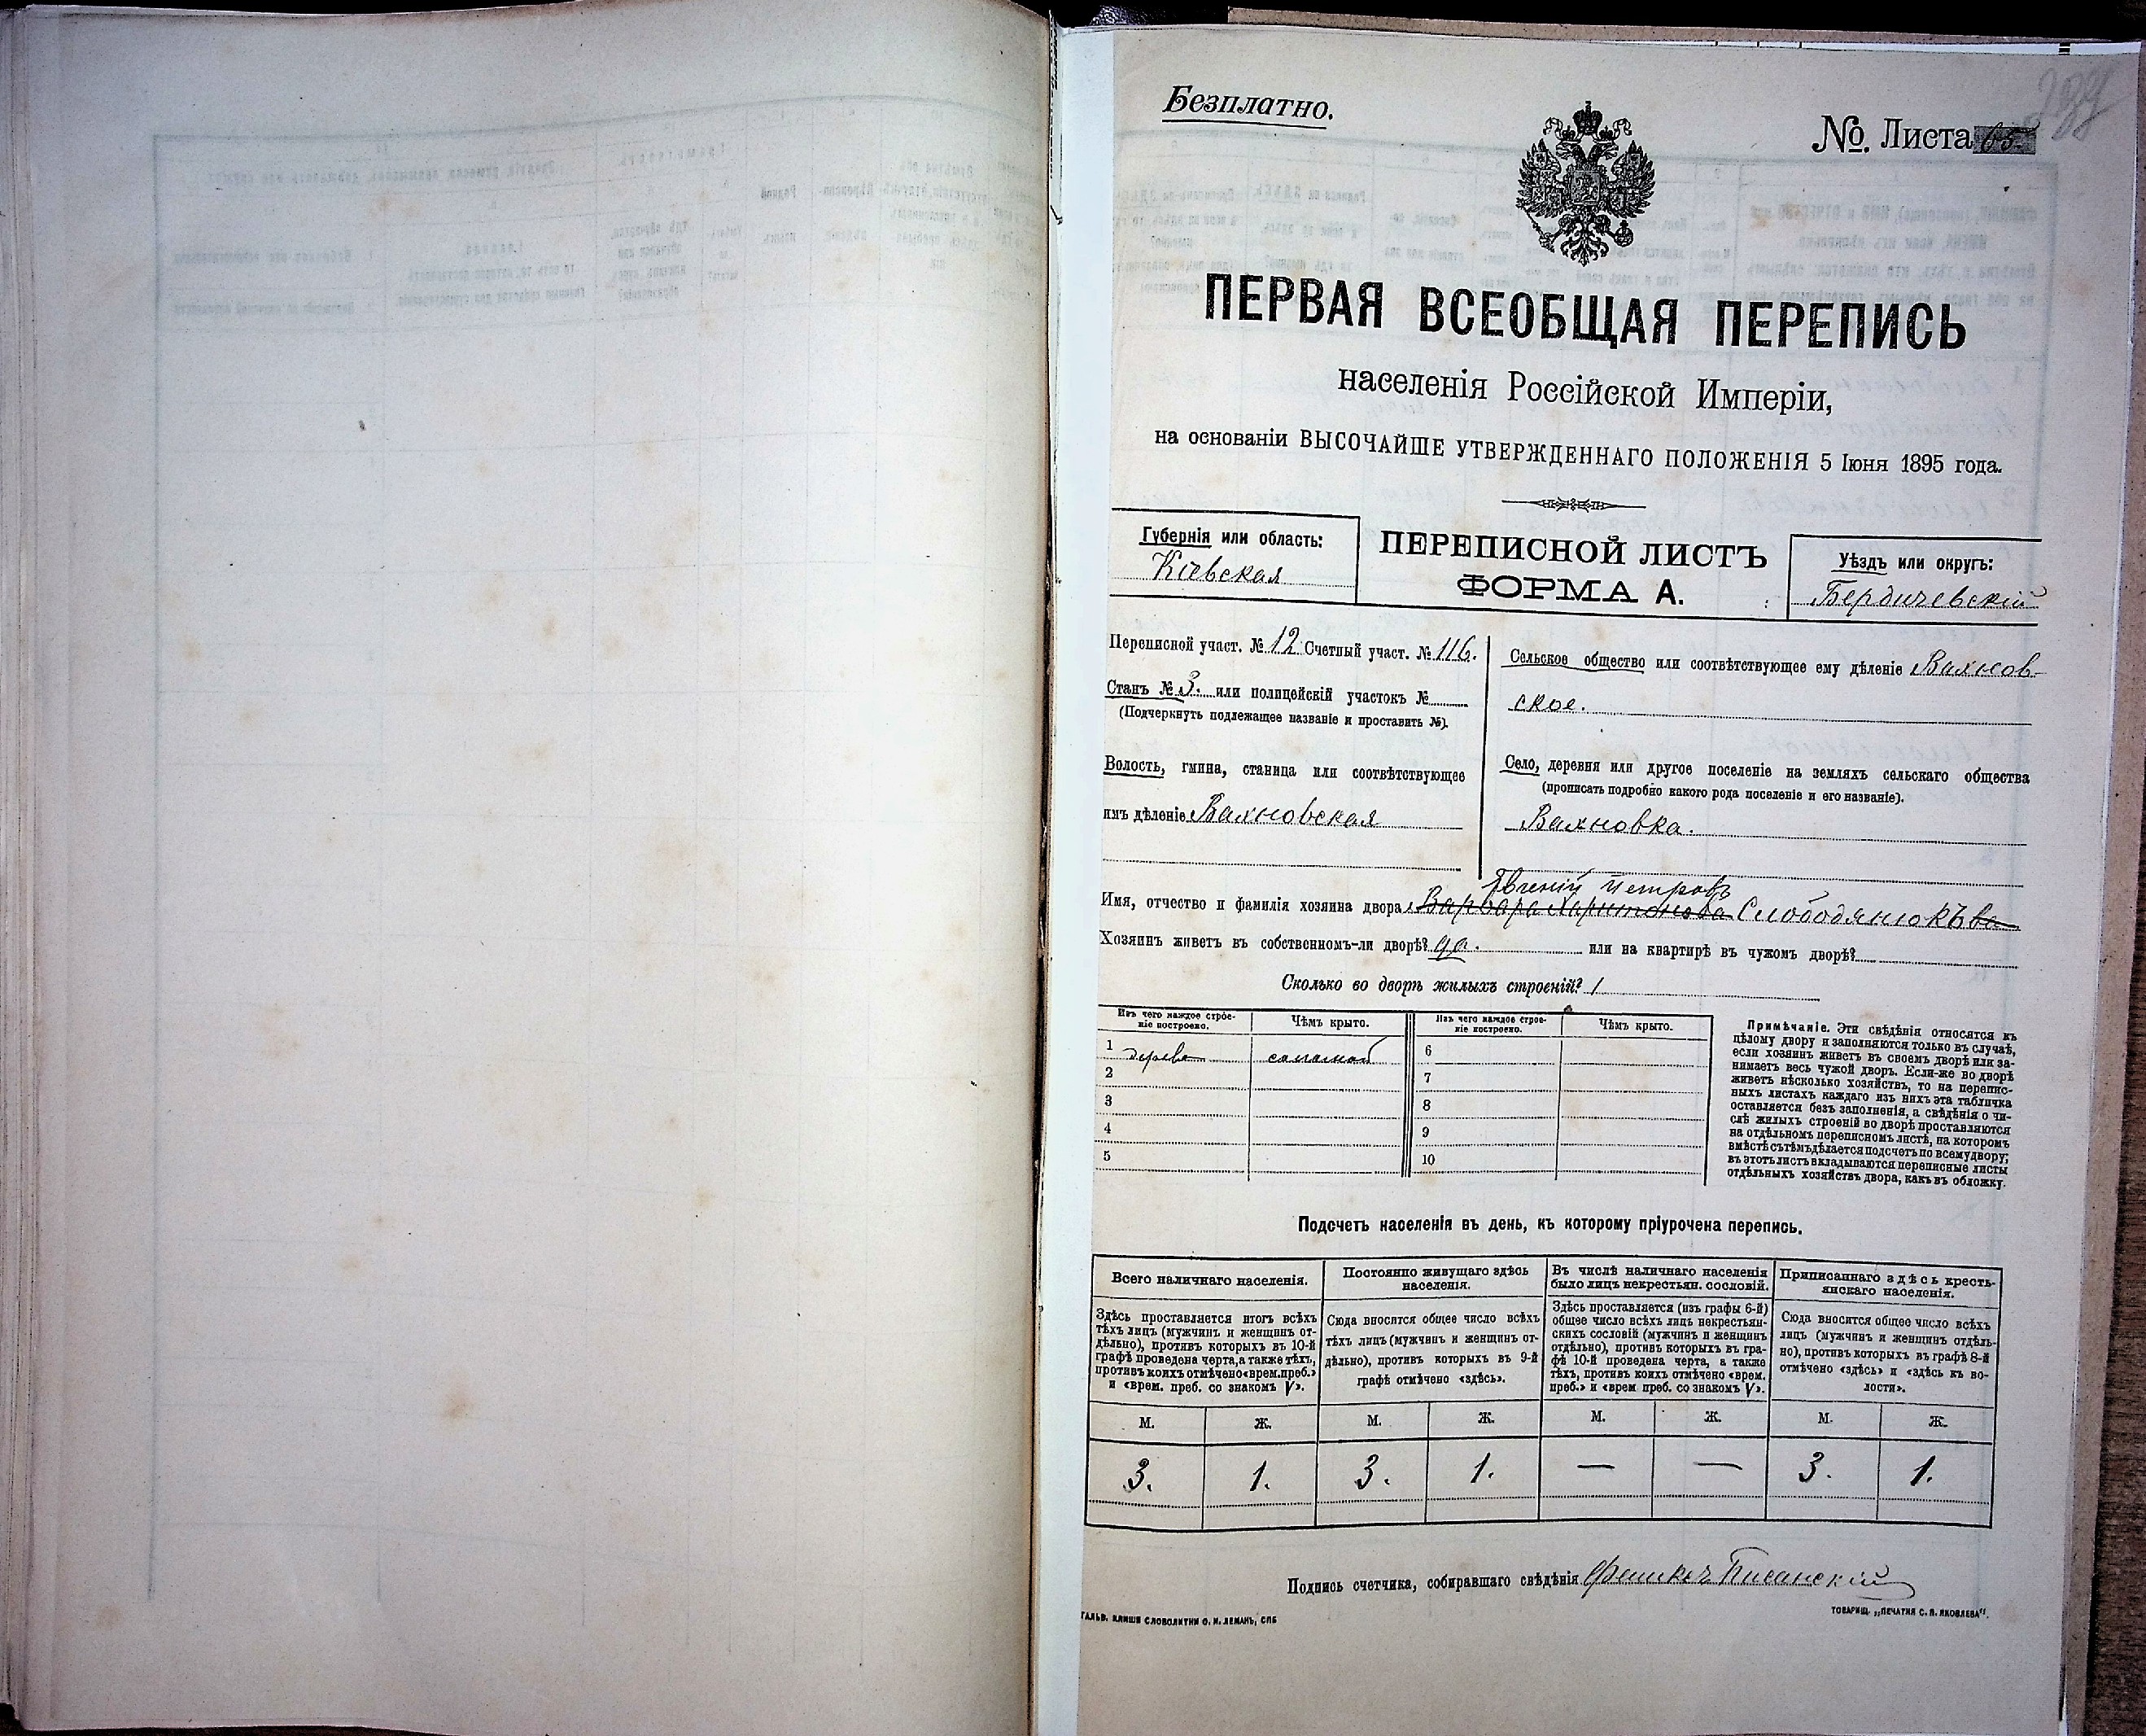 Безплатно.
№. Листа 65.
ПЕРВАЯ ВСЕОБЩАЯ ПЕРЕПИСЬ
населенія Россійской Имперіи,
на основаніи ВЫСОЧАЙШЕ УТВЕРЖДЕННАГО ПОЛОЖЕНІЯ 5 Іюня 1895 года.
Губернія или область:
Кіевская
ПЕРЕПИСНОЙ ЛИСТЪ
ФОРМА А.
Уѣздъ или округъ:
Бердичевскій
Переписной участ. № 12 Счетный участ. № 116.
Станъ № 3. или полицейскій участокъ №
(Подчеркнуть подлежащее названіе и проставить №).
Волость, гмина, станица или соотвѣтствующее
имъ дѣленіе Вахновская
Сельское общество или соотвѣтствующее ему дѣленіе Вахнов-
ское.
Село, деревня или другое поселеніе на земляхъ сельскаго общества
(прописать подробно какого рода поселеніе и его названіе).
Вахновка.
Евгеній Петровъ
Имя, отчество и фамилія хозяина двора Варвара Харитонова Слободянюкъва
Хозяинъ живетъ въ собственномъ-ли дворѣ? да. или на квартирѣ въ чужомъ дворѣ?
Сколько во дворѣ жилыхъ строеній? 1
Изъ чего каждое строе-
ніе построено.
Чѣмъ крыто.
Изъ чего каждое строе-
ніе построено.
Чѣмъ крыто.
1 дерева соломой 6
2 7
3 8
4 9
5 10
Примѣчаніе. Эти свѣдѣнія относятся къ
цѣлому двору и заполняются только въ случаѣ,
если хозяинъ живетъ въ своемъ дворѣ или за-
нимаетъ весь чужой дворъ. Если-же во дворѣ
живетъ нѣсколько хозяйствъ, то на перепис-
ныхъ листахъ каждаго изъ нихъ эта табличка
оставляется безъ заполненія, а свѣдѣнія о чи-
слѣ жилыхъ строеній во дворѣ проставляются
на отдѣльномъ переписномъ листѣ, на которомъ
вмѣстѣ съ тѣмъ дѣлается подсчетъ по всему двору;
въ этотъ листъ вкладываются переписные листы
отдѣльныхъ хозяйствъ двора, какъ въ обложку.
Подсчетъ населенія въ день, къ которому пріурочена перепись.
Всего наличнаго населенія.
Здѣсь проставляется итогъ всѣхъ
тѣхъ лицъ (мужчинъ и женщинъ от-
дѣльно), противъ которыхъ въ 10-й
графѣ проведена черта, а также тѣхъ,
противъ коихъ отмѣчено «врем. преб.»
и «врем. преб. со знакомъ V».
Постоянно живущаго здѣсь
населенія.
Сюда вносится общее число всѣхъ
тѣхъ лицъ (мужчинъ и женщинъ от-
дѣльно), противъ которыхъ въ 9-й
графѣ отмѣчено «здѣсь».
Въ числѣ наличнаго населенія
было лицъ некрестьян. сословій.
Здѣсь проставляется (изъ графы 6-й)
общее число всѣхъ лицъ некрестьян-
скихъ сословій (мужчинъ и женщинъ
отдѣльно), противъ которыхъ въ гра-
фѣ 10-й проведена черта, а также
тѣхъ, противъ коихъ отмѣчено «врем.
преб.» и «врем преб. со знакомъ V».
Приписаннаго здѣсь кресть-
янскаго населенія.
Сюда вносится общее число всѣхъ
лицъ (мужчинъ и женщинъ отдѣль-
но), противъ которыхъ въ графѣ 8-й
отмѣчено «здѣсь» и «здѣсь къ во-
лости».
М. Ж. М. Ж. М. Ж. М. Ж.
3. 1. 3. 1. — — 3. 1.
Подпись счетчика, собиравшаго свѣдѣнія Писанскій
ГАЛЬВ. КЛИШЕ СЛОВОЛИТНИ О. И. ЛЕМАНЪ, СПБ
ТОВАРИЩ. „ПЕЧАТНЯ С. П. ЯКОВЛЕВА".